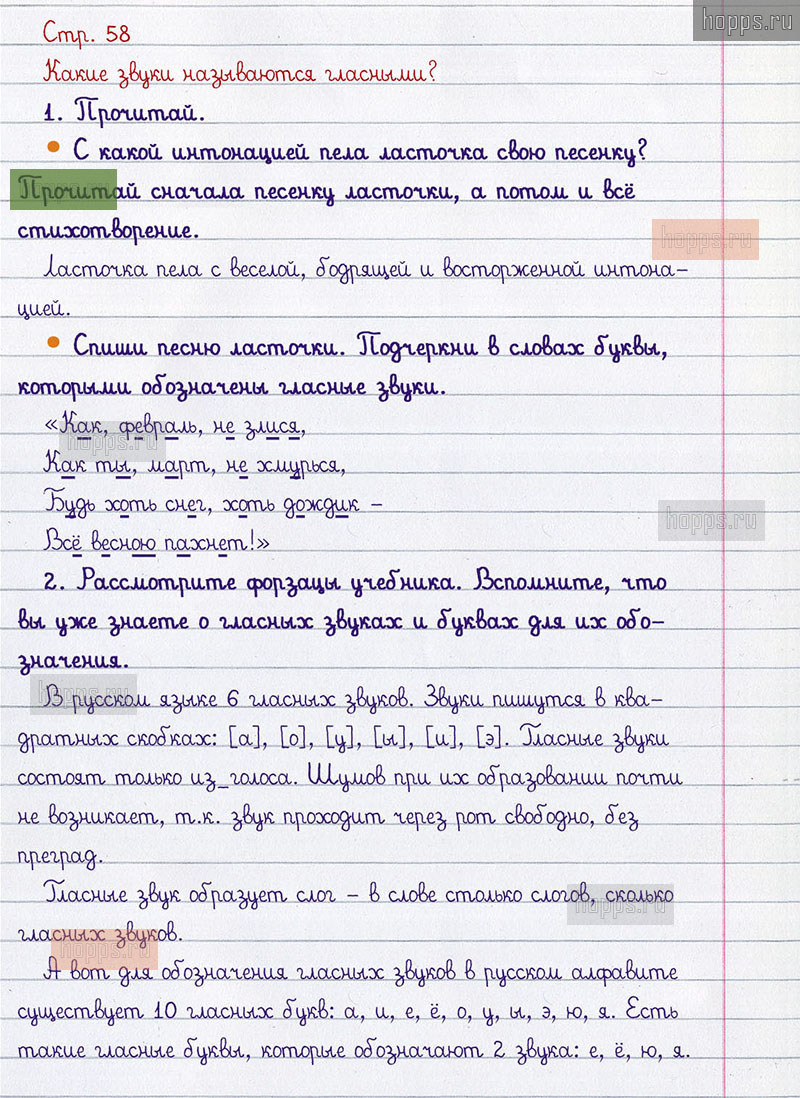 hopps.ru
Стр. 58
Какие звуки называются гласными?
1. Прочитай.
• С какой интонацией пела ласточка свою песенку?
Прочитай сначала песенку ласточки, а потом и всё
стихотворение.
hopps.ru
Ласточка пела с веселой, бодрящей и восторженной интона-
цией.
• Спиши песню ласточки. Подчеркни в словах буквы,
которыми обозначены гласные звуки.
«Как, февраль, не злися,
hopps.ru
Как ты, март, не хмурься,
Будь хоть снег, хоть дождик –
hopps.ru
Всё весною пахнет!»
2. Рассмотрите форзацы учебника. Вспомните, что
вы уже знаете о гласных звуках и буквах для их обо-
значения.
hopps.ru
В русском языке 6 гласных звуков. Звуки пишутся в ква-
дратных скобках: [а], [о], [у], [ы], [и], [э]. Гласные звуки
состоят только из_голоса. Шумов при их образовании почти
не возникает, т.к. звук проходит через рот свободно, без
преград.
Гласные звук образует слог – в слове столько слогов, сколько
hopps.ru
гласных звуков.
hopps.ru
А вот для обозначения гласных звуков в русском алфавите
существует 10 гласных букв: а, и, е, ё, о, у, ы, э, ю, я. Есть
такие гласные буквы, которые обозначают 2 звука: е, ё, ю, я.